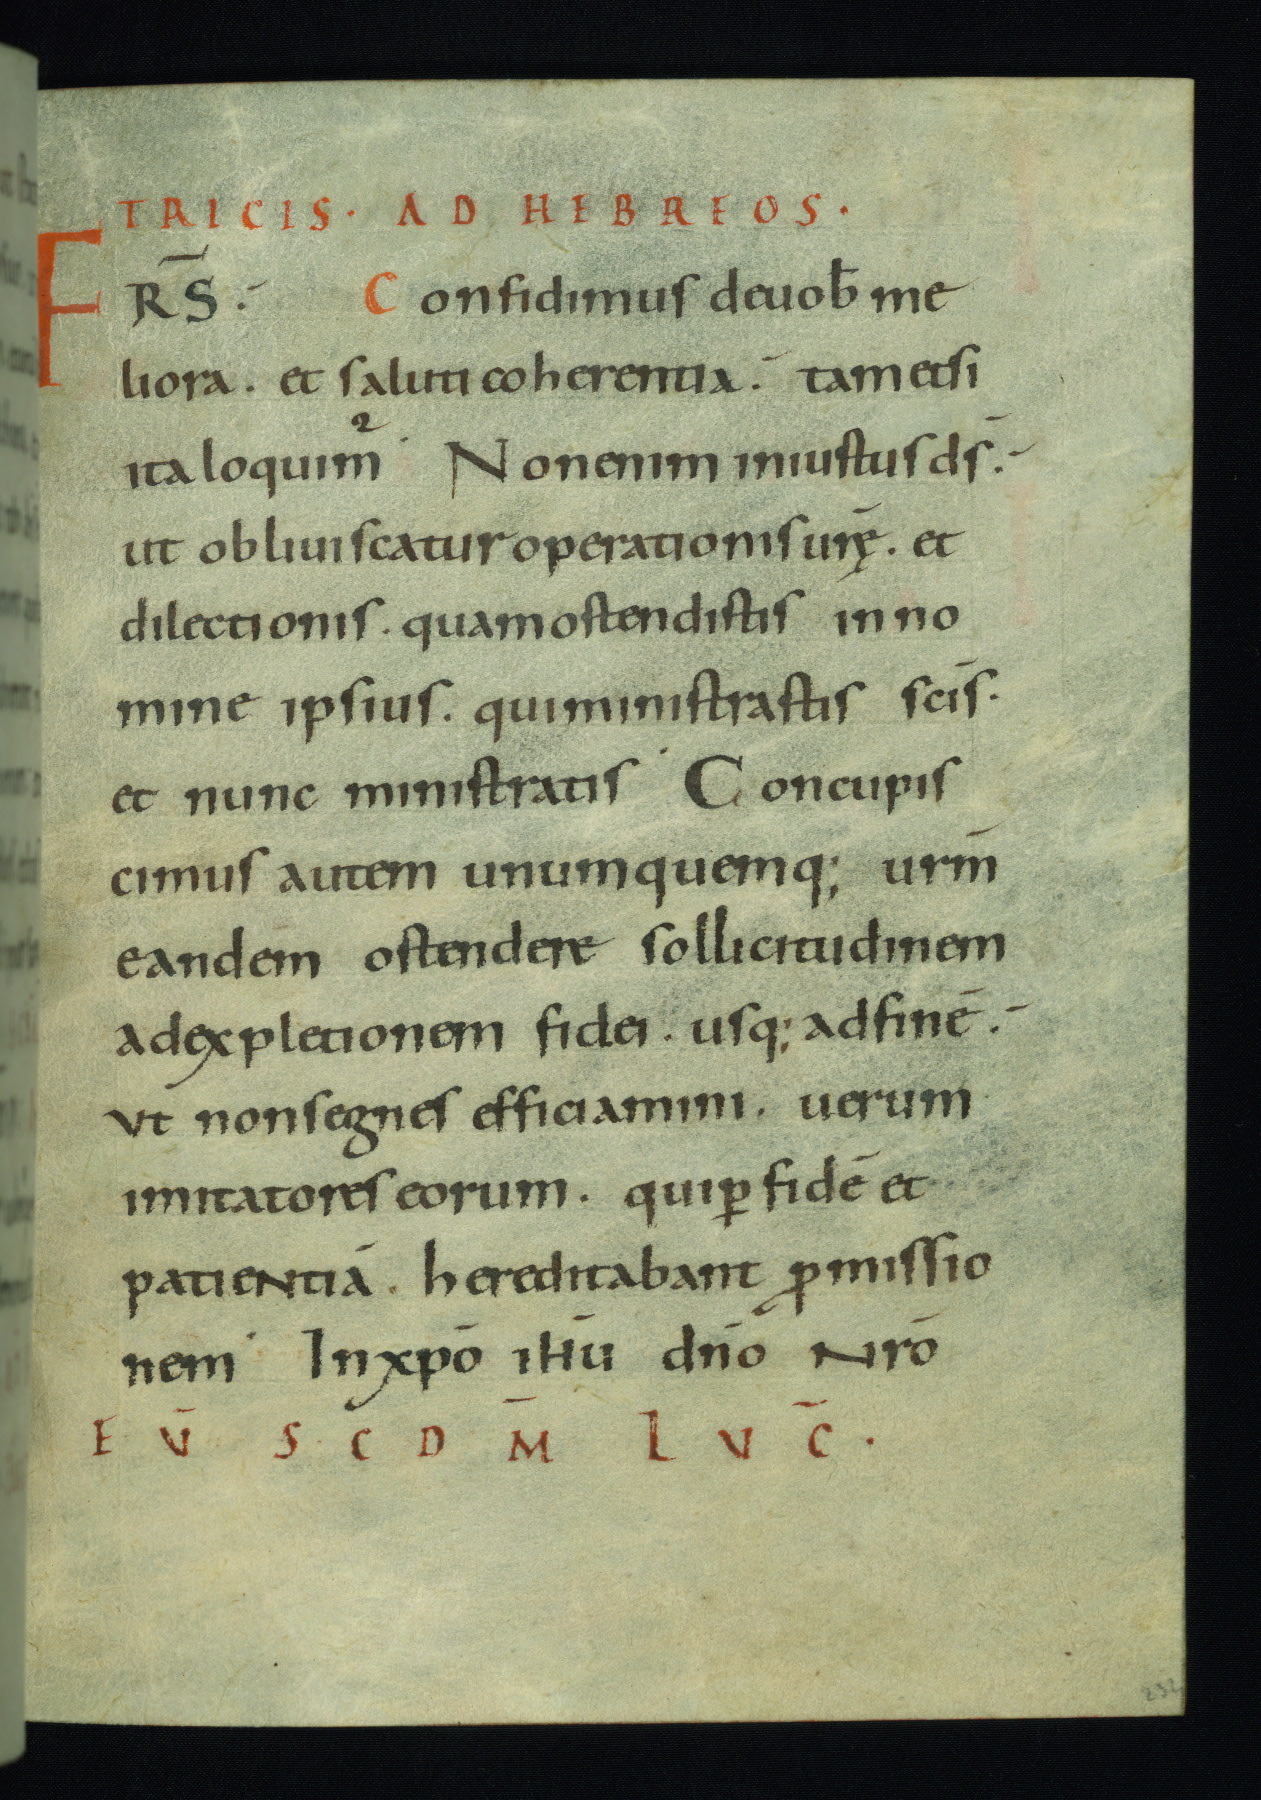 TRICIS · AD HEBREOS ·
FRS̄ : Confidimus de uob̄ me
liora . et saluti coherentia : tametsi
ita loquim᷑ · Non enim iniustus ds̄ :
ut obliuiscatur operationis ur̄ę . et
dilectionis . quam ostendistis in no
mine ipsius . qui ministrastis scīs .
et nunc ministratis · Concupis
cimus autem unumquemq; urm̄
eandem ostendere sollicitudinem
ad expletionem fidei . usq; ad finē :
Vt non segnes efficiamini . uerum
imitatores eorum . qui ꝑ fidē et
patientiā . hereditabant ꝓmissio
nem · In xp̄o ihū dn̄o nr̄o
EV̄ SCDM̄ LVC̄ ·
232